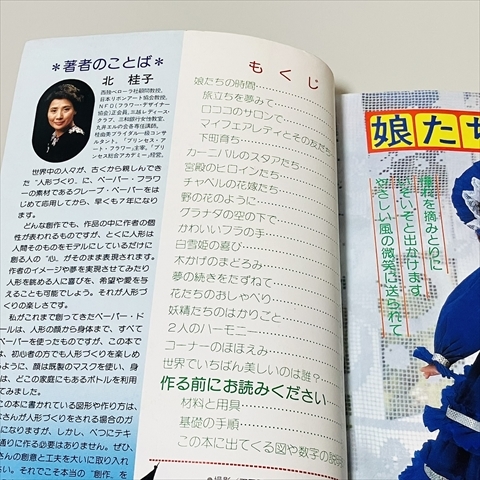 ＊著者のことば＊
北 桂子
西独ベローラ社顧問教授。
日本リボンアート協会教授。
NFD(フラワー・デザイナー
協会)正会員。三越レディース・
クラブ、三和銀行女性教室、
九弁エルの会各専任講師。
桂由美ブライダル一級コン
サルタント。「プリンセス・アー
ト・フラワー」主宰。「プリ
ンセス総合アカデミー」経営。
世界中の人々が、古くから親しんできた
“人形づくり”に、ペーパー・フラワー
の素材であるクレープ・ペーパーをは
じめて応用してから、早くも7年になり
ます。
どんな創作でも、作品の中に作者の個
性が表われるものですが、とくに人形は
人間そのものをモデルにしているだけに
創る人の“心”がそのまま表現されます。
作者のイメージや夢を実現させてみたり
人形を眺める人に喜びを、希望や愛を与
えることも可能でしょう。それが人形づ
くりの楽しさです。
私がこれまで創ってきたペーパー・ド
ールは、人形の顔から身体まで、すべて
ペーパーを使ったものですが、この本で
は、初心者の方でも人形づくりを楽しめ
るように、顔は既製のマスクを使い、身
は、どこの家庭にもあるボトルを利用
てみました。
この本に書かれている図形や作り方は、
なさんが人形づくりをされる場合のガ
になりますが、しかし、べつにテキ
通りに作る必要はありません。ぜひ、
さんの創意と工夫を大いに取り入れ
さい。それでこそ本当の“創作”を
もくじ
娘たちの時間
旅立ちを夢みて
ロココのサロンで
マイフェアレディとその友だち
下町育ち
カーニバルのスタアたち
宮殿のヒロインたち
チャペルの花嫁たち
野の花のように
グラナダの空の下で
かわいいフラの手
白雪姫の喜び
木かげのまどろみ
夢の続きをたずねて
花たちのおしゃべり
妖精たちのはかりごと
2人のハーモニー
コーナーのほほえみ
世界でいちばん美しいのは誰?
作る前にお読みください
材料と用具
基礎の手順
この本に出てくる図や数字の説明
娘たち
やさしい風の微笑に送られて